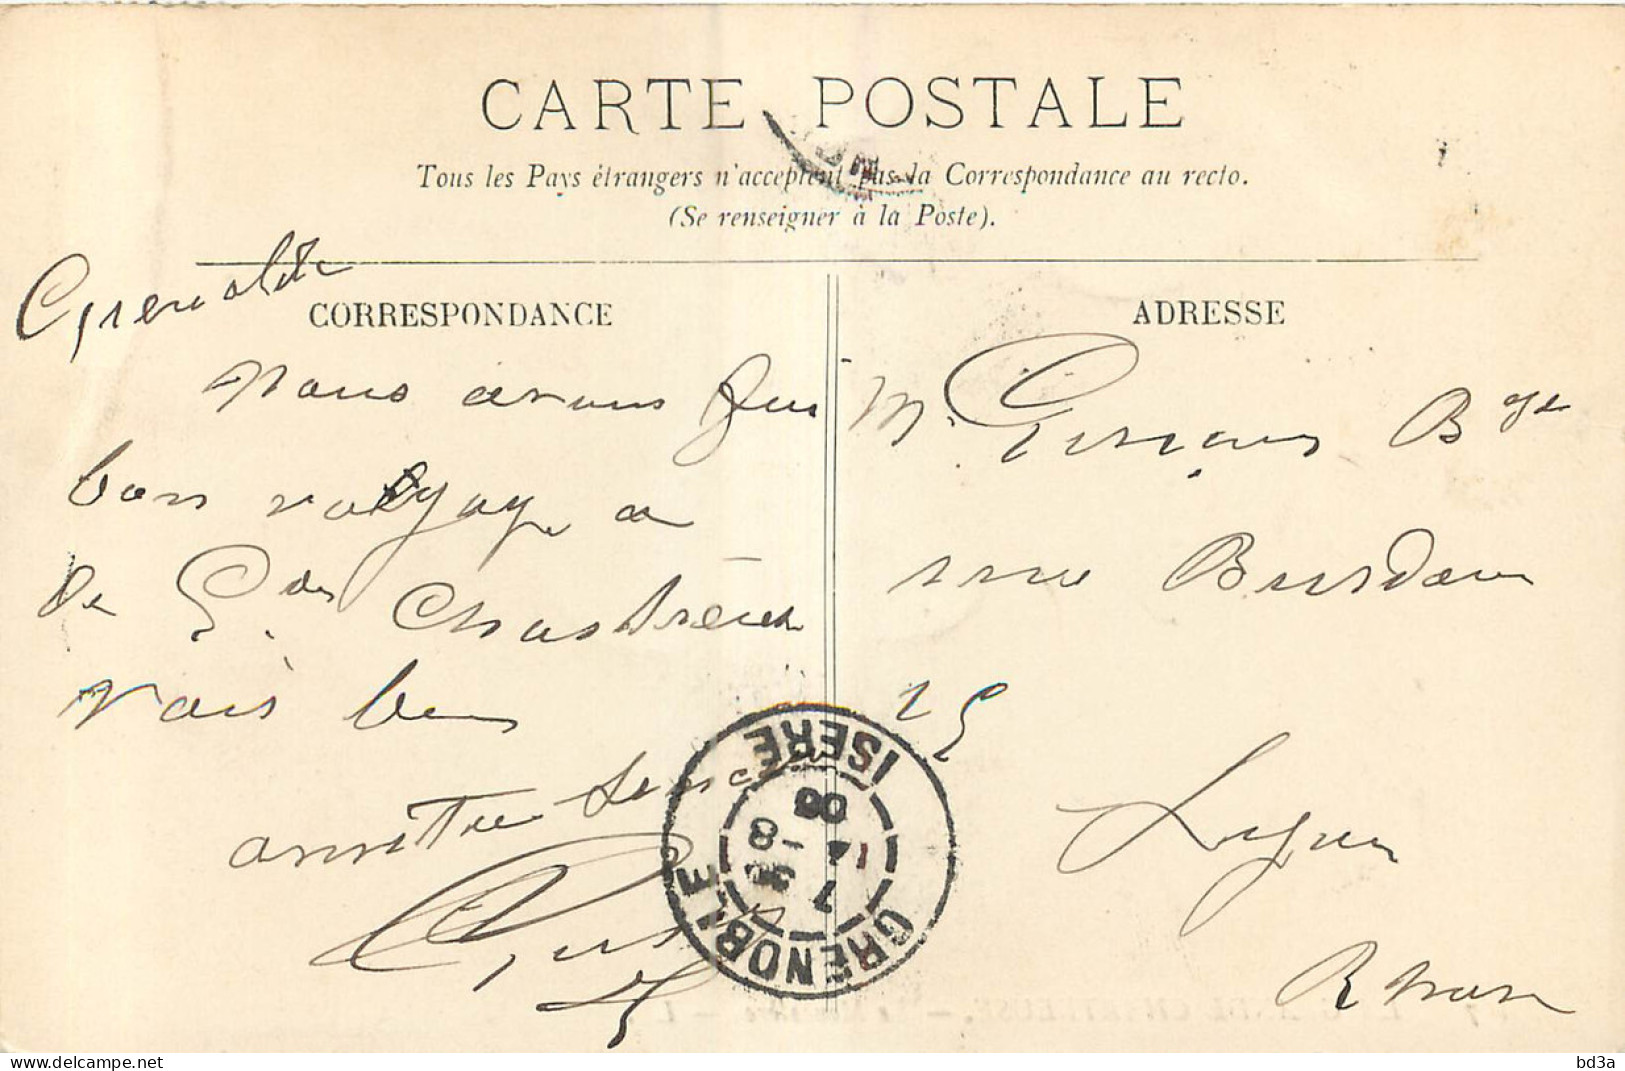 CARTE POSTALE
Tous les Pays étrangers n'acceptent pas la Correspondance au recto.
(Se renseigner à la Poste).
CORRESPONDANCE
ADRESSE
Grenoble
nous avons fais
bon voyage a
la Gde Chartreuse
vais bien
amitié
M. B
rue Burdeau
25
Lyon
Rhone
GRENOBLE
ISERE
7 30
14 -8
06
LA GRANDE CHARTREUSE. -
bd3a